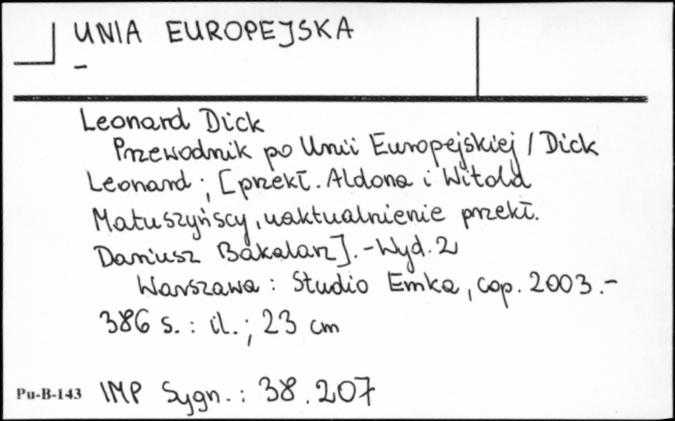 UNIA EUROPEJSKA
-
Leonard Dick
Przewodnik po Unii Europejskiej / Dick
Leonard ; [przekł. Aldona i Witold
Matuszyńscy, uaktualnienie przekł.
Dariusz Bakalarz]. - Wyd. 2
Warszawa : Studio Emka, cop. 2003. -
386 s. : il. ; 23 cm
Pu-B-143 IMP Sygn. : 38.207